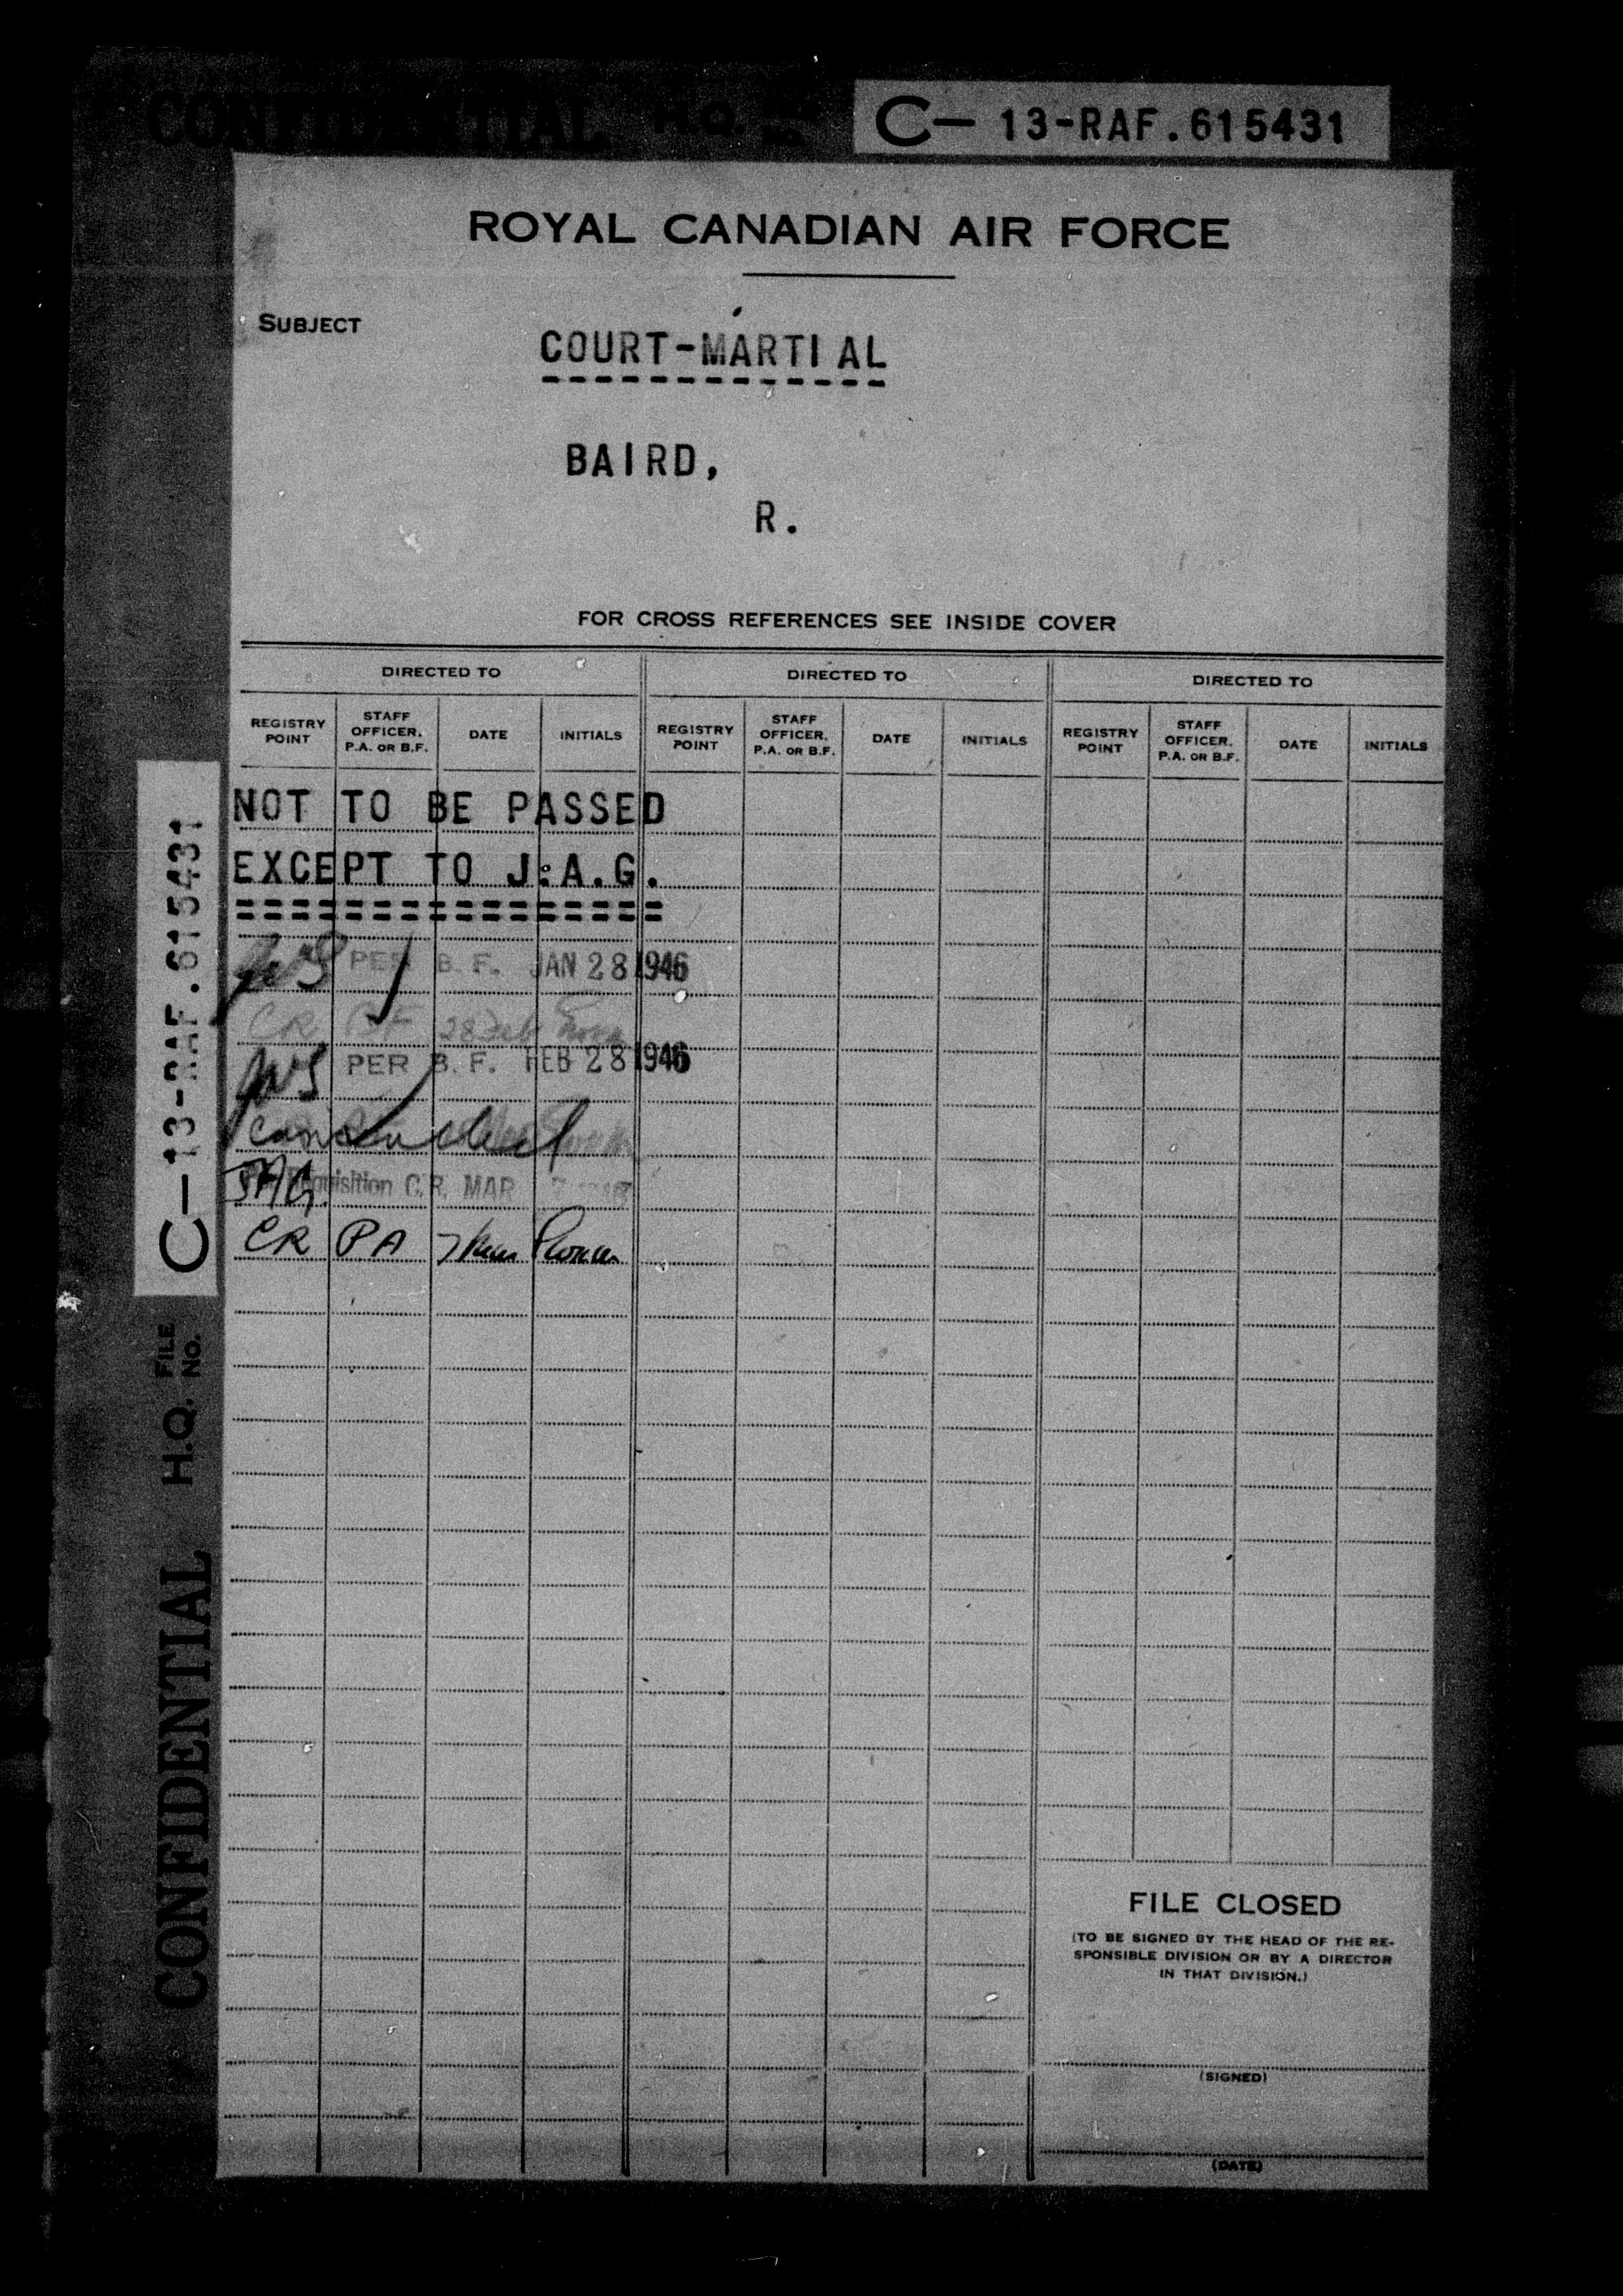 CONFIDENTIAL H.Q. C— 13-RAF.615431
ROYAL CANADIAN AIR FORCE
SUBJECT
COURT-MARTIAL
BAIRD,
R.
FOR CROSS REFERENCES SEE INSIDE COVER
DIRECTED TO DIRECTED TO DIRECTED TO
REGISTRY POINT STAFF OFFICER, P.A. OR B.F. DATE INITIALS REGISTRY POINT STAFF OFFICER, P.A. OR B.F. DATE INITIALS REGISTRY POINT STAFF OFFICER, P.A. OR B.F. DATE INITIALS
NOT TO BE PASSED
EXCEPT TO J.A.G.
PER B.F. JAN 28 1946
CR BF 28 Feb
PER B.F. FEB 28 1946
JAG. Requisition C.R. MAR
CR PA
FILE CLOSED
(TO BE SIGNED BY THE HEAD OF THE RE-
SPONSIBLE DIVISION OR BY A DIRECTOR
IN THAT DIVISION.)
(SIGNED)
(DATE)
CONFIDENTIAL H.Q. FILE NO. C— 13-RAF.615431